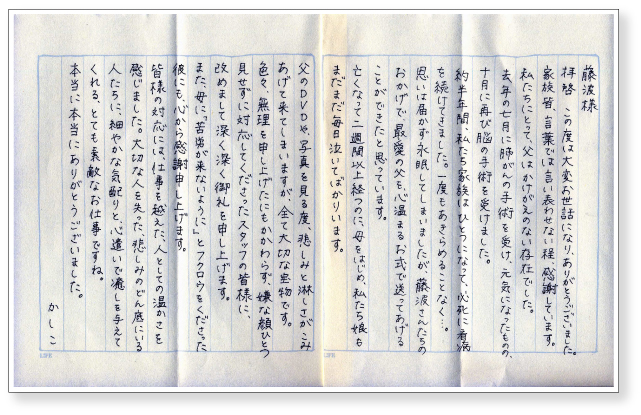 藤波様
拝啓 この度は大変お世話になり、ありがとうございました。
家族皆、言葉では言い表わせない程、感謝しています。
私たちにとって、父はかけがえのない存在でした。
去年の七月に肺がんの手術を受け、元気になったものの、
十月に再び脳の手術を受けました。
約半年間、私たち家族はひとつになって、必死に看病
を続けてきました。一度もあきらめることなく…。
思いは届かず永眠してしまいましたが、藤波さんたちの
おかげで、最愛の父を、心温まるお式で送ってあげる
ことができたと思っています。
亡くなって二週間以上経つのに、母をはじめ、私たち娘も
まだまだ毎日泣いてばかりいます。
父のDVDや、写真を見る度、悲しみと淋しさがこみ
あげて来てしまいますが、全て大切な宝物です。
色々、無理を申し上げたにもかかわらず、嫌な顔ひとつ
見せずに対応してくださったスタッフの皆様に、
改めまして深く深く御礼を申し上げます。
また、母に「苦労が来ないように」とフクロウをくださった
彼にも、心から感謝申し上げます。
皆様の対応には、仕事を越えた、人としての温かさを
感じました。大切な人を失った、悲しみのどん底にいる
人たちに、細やかな気配りと、心遣いで癒しを与えて
くれる、とても素敵なお仕事ですね。
本当に本当にありがとうございました。
かしこ
LIFE
LIFE